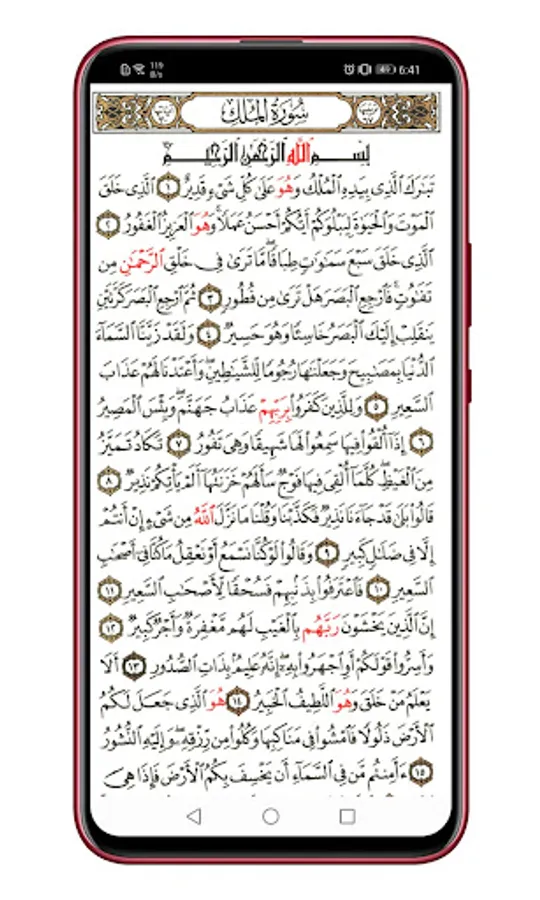 119 B/s 6:41
سُورَةُ الْمُلْكِ
بِسْمِ اللَّهِ الرَّحْمَٰنِ الرَّحِيمِ
تَبَارَكَ الَّذِي بِيَدِهِ الْمُلْكُ وَهُوَ عَلَىٰ كُلِّ شَيْءٍ قَدِيرٌ ١ الَّذِي خَلَقَ
الْمَوْتَ وَالْحَيَوٰةَ لِيَبْلُوَكُمْ أَيُّكُمْ أَحْسَنُ عَمَلًا وَهُوَ الْعَزِيزُ الْغَفُورُ ٢
الَّذِي خَلَقَ سَبْعَ سَمَٰوَٰتٍ طِبَاقًا مَّا تَرَىٰ فِي خَلْقِ الرَّحْمَٰنِ مِن
تَفَٰوُتٍ فَارْجِعِ الْبَصَرَ هَلْ تَرَىٰ مِن فُطُورٍ ٣ ثُمَّ ارْجِعِ الْبَصَرَ كَرَّتَيْنِ
يَنقَلِبْ إِلَيْكَ الْبَصَرُ خَاسِئًا وَهُوَ حَسِيرٌ ٤ وَلَقَدْ زَيَّنَّا السَّمَاءَ
الدُّنْيَا بِمَصَٰبِيحَ وَجَعَلْنَٰهَا رُجُومًا لِّلشَّيَٰطِينِ وَأَعْتَدْنَا لَهُمْ عَذَابَ
السَّعِيرِ ٥ وَلِلَّذِينَ كَفَرُوا بِرَبِّهِمْ عَذَابُ جَهَنَّمَ وَبِئْسَ الْمَصِيرُ
٦ إِذَا أُلْقُوا فِيهَا سَمِعُوا لَهَا شَهِيقًا وَهِيَ تَفُورُ ٧ تَكَادُ تَمَيَّزُ
مِنَ الْغَيْظِ كُلَّمَا أُلْقِيَ فِيهَا فَوْجٌ سَأَلَهُمْ خَزَنَتُهَا أَلَمْ يَأْتِكُمْ نَذِيرٌ ٨
قَالُوا بَلَىٰ قَدْ جَاءَنَا نَذِيرٌ فَكَذَّبْنَا وَقُلْنَا مَا نَزَّلَ اللَّهُ مِن شَيْءٍ إِنْ أَنتُمْ
إِلَّا فِي ضَلَٰلٍ كَبِيرٍ ٩ وَقَالُوا لَوْ كُنَّا نَسْمَعُ أَوْ نَعْقِلُ مَا كُنَّا فِي أَصْحَٰبِ
السَّعِيرِ ١٠ فَاعْتَرَفُوا بِذَنبِهِمْ فَسُحْقًا لِّأَصْحَٰبِ السَّعِيرِ ١١
إِنَّ الَّذِينَ يَخْشَوْنَ رَبَّهُم بِالْغَيْبِ لَهُم مَّغْفِرَةٌ وَأَجْرٌ كَبِيرٌ ١٢
وَأَسِرُّوا قَوْلَكُمْ أَوِ اجْهَرُوا بِهِ إِنَّهُ عَلِيمٌ بِذَاتِ الصُّدُورِ ١٣ أَلَا
يَعْلَمُ مَنْ خَلَقَ وَهُوَ اللَّطِيفُ الْخَبِيرُ ١٤ هُوَ الَّذِي جَعَلَ لَكُمُ
الْأَرْضَ ذَلُولًا فَامْشُوا فِي مَنَاكِبِهَا وَكُلُوا مِن رِّزْقِهِ وَإِلَيْهِ النُّشُورُ
١٥ ءَأَمِنتُم مَّن فِي السَّمَاءِ أَن يَخْسِفَ بِكُمُ الْأَرْضَ فَإِذَا هِيَ